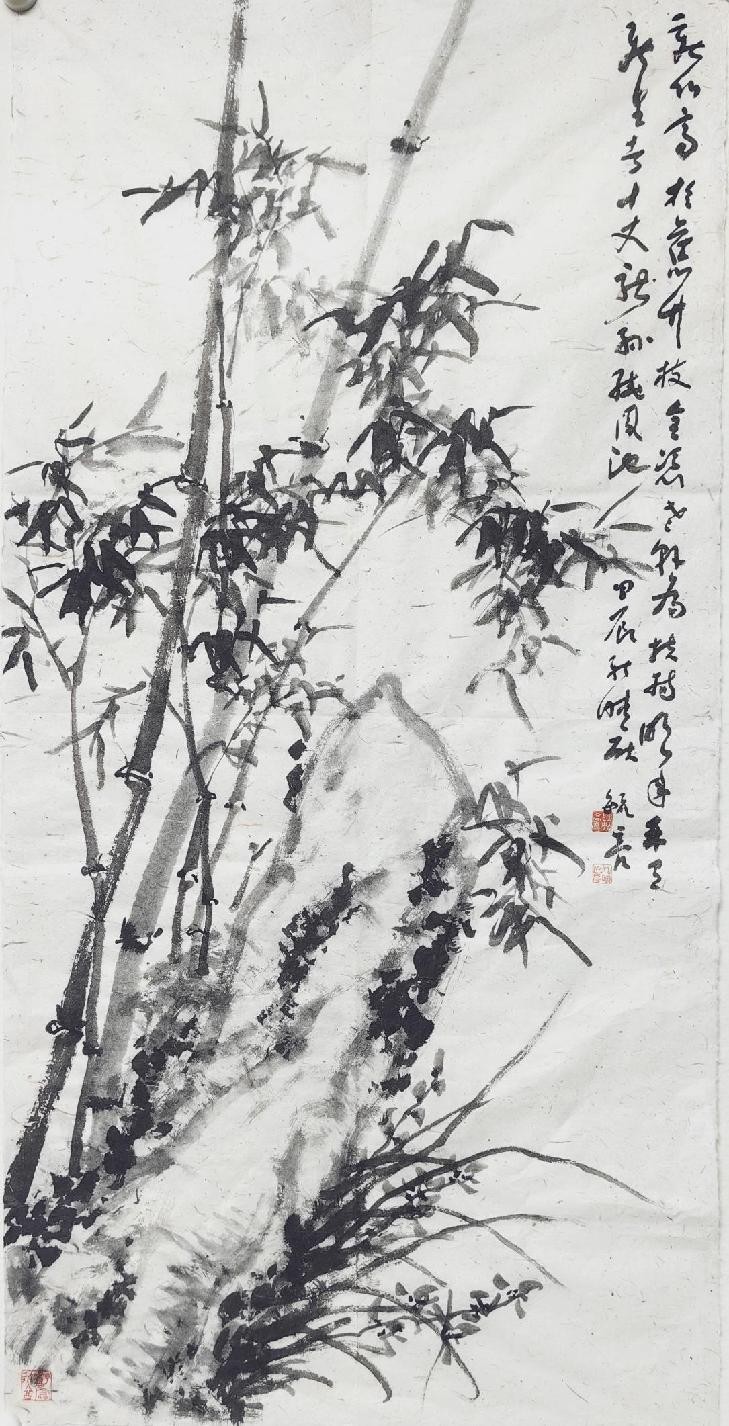 新竹高於舊竹枝全憑老幹為扶持明年再有
新生者十丈龍孫繞鳳池
甲辰秋